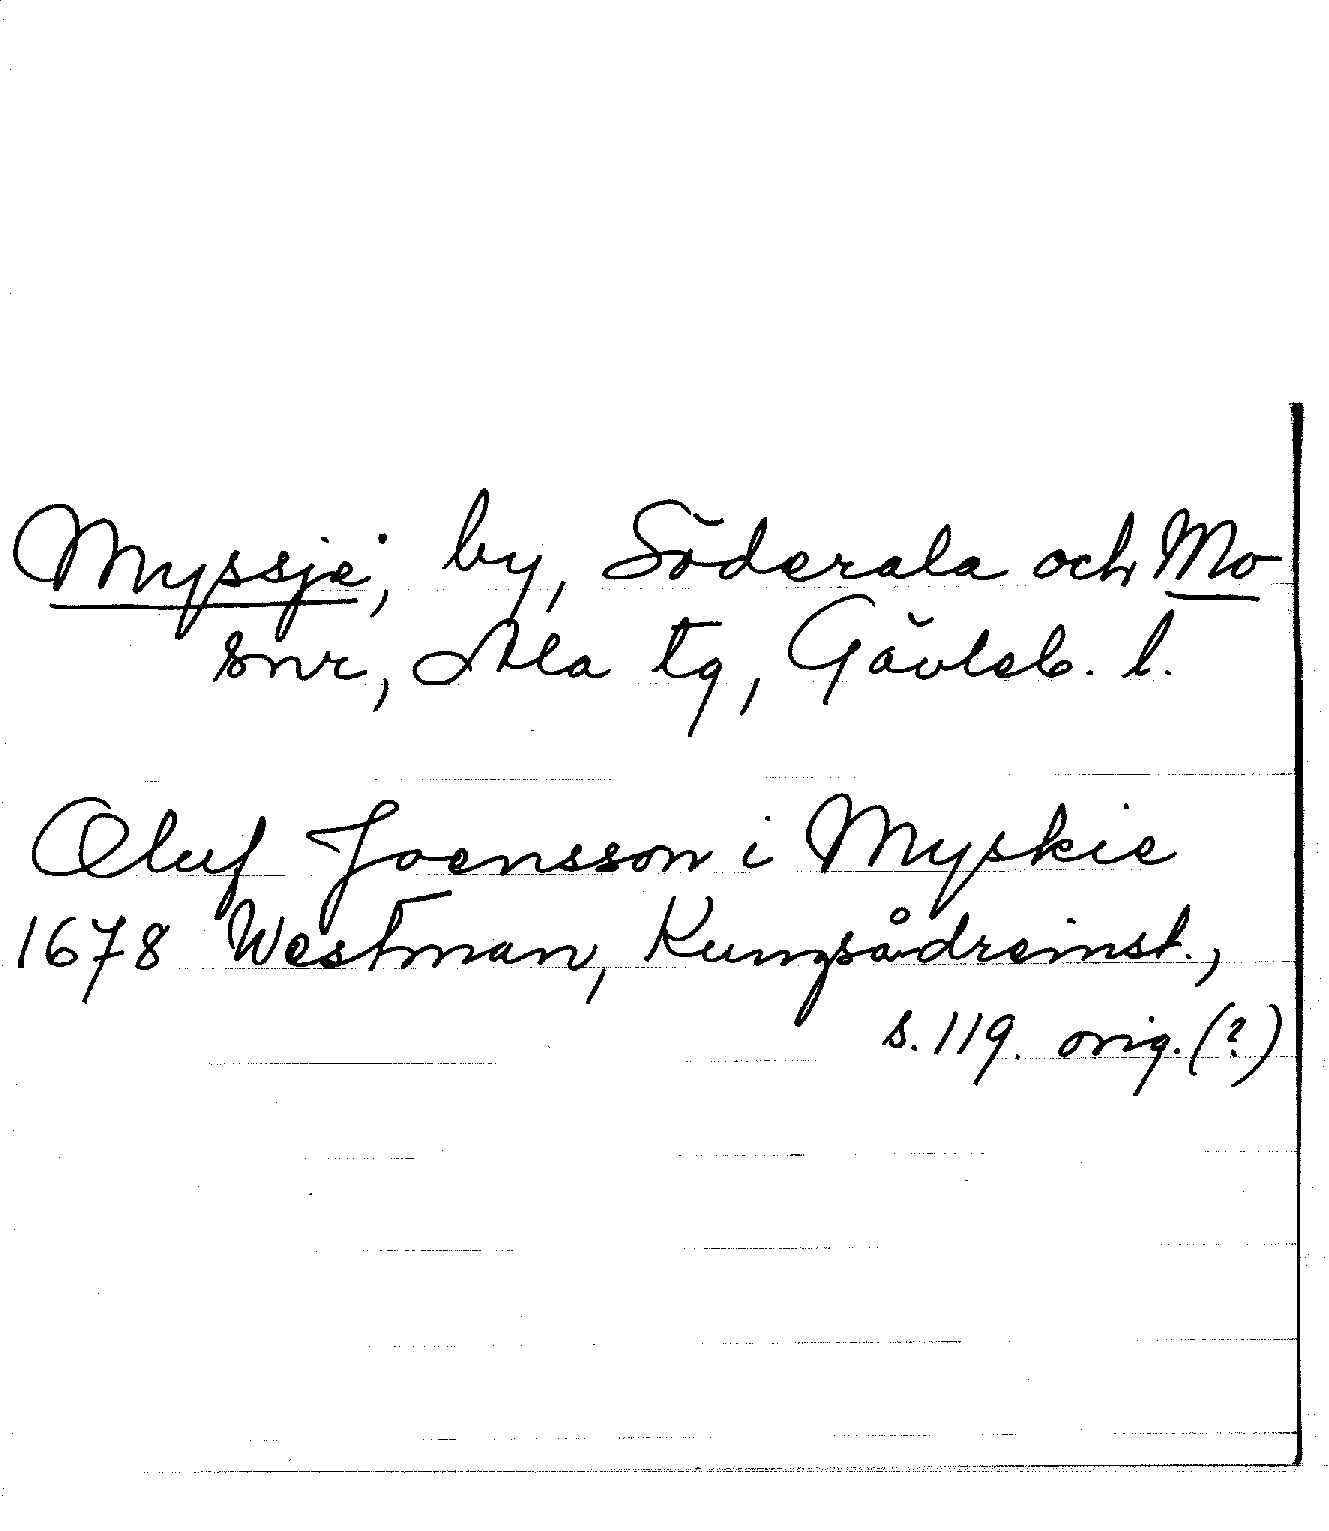 Myssje, by, Söderala och Mo
snr, Ala tg, Gävleb. l.
Oluf Joensson i Myskie
1678 Westman, Kungsådreinst.,
s. 119. orig. (?)